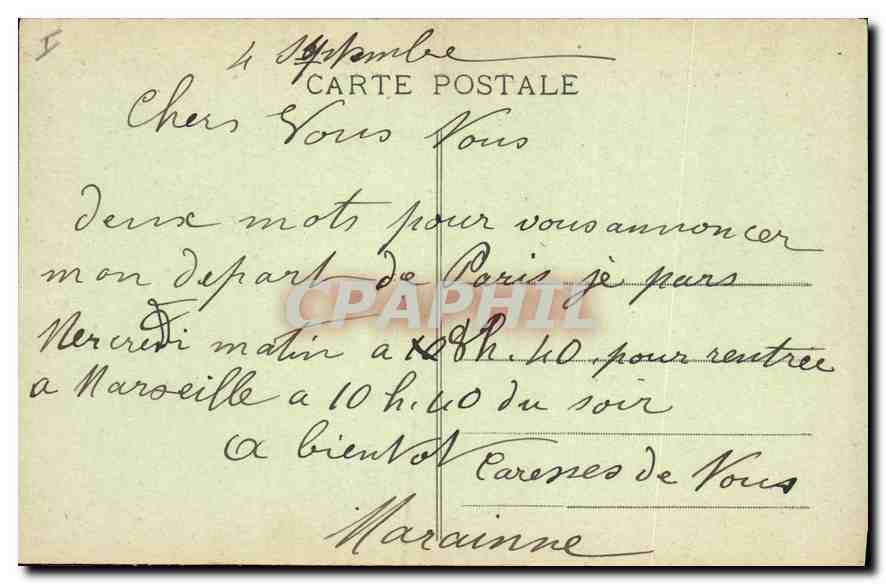 I
4 Septembre
CARTE POSTALE
Chers Vous Nous
deux mots pour vous annoncer
mon depart de Paris je pars
CPAPHIL
Mercredi matin a 8h.40. pour rentrée
a Marseille a 10 h.40 du soir
a bientot Caresses de Nous
Marainne